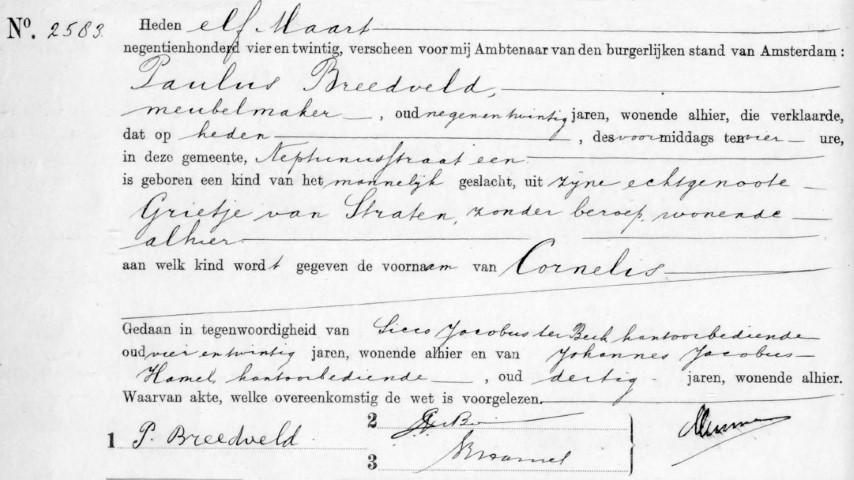 No. 2583. Heden elf Maart
negentienhonderd vier en twintig, verscheen voor mij Ambtenaar van den burgerlijken stand van Amsterdam:
Paulus Breedveld,
meubelmaker, oud negenentwintig jaren, wonende alhier, die verklaarde,
dat op heden, des voormiddags ten vier ure,
in deze gemeente, Neptunusstraat een
is geboren een kind van het mannelijk geslacht, uit zijne echtgenoote
Grietje van Straten, zonder beroep, wonende
alhier
aan welk kind wordt gegeven de voornaam van Cornelis
Gedaan in tegenwoordigheid van Sicco Jacobus ter Beek kantoorbediende
oud vier entwintig jaren, wonende alhier en van Johannes Jacobus
Hamel, kantoorbediende, oud dertig jaren, wonende alhier.
Waarvan akte, welke overeenkomstig de wet is voorgelezen.
1 P. Breedveld
2
3